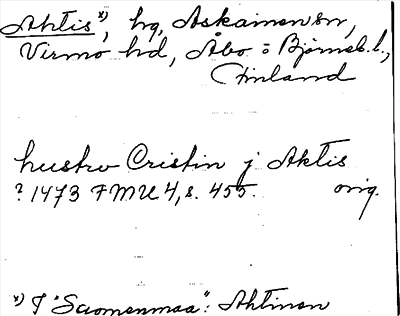 Ahtis *), hg, Askainen sn,
Virmo hd, Åbo o Björneb. l.,
Finland
hustro Cristin j Aktis
? 1473 FMU 4, s. 455. orig.
*) I "Suomenmaa": Ahtinen